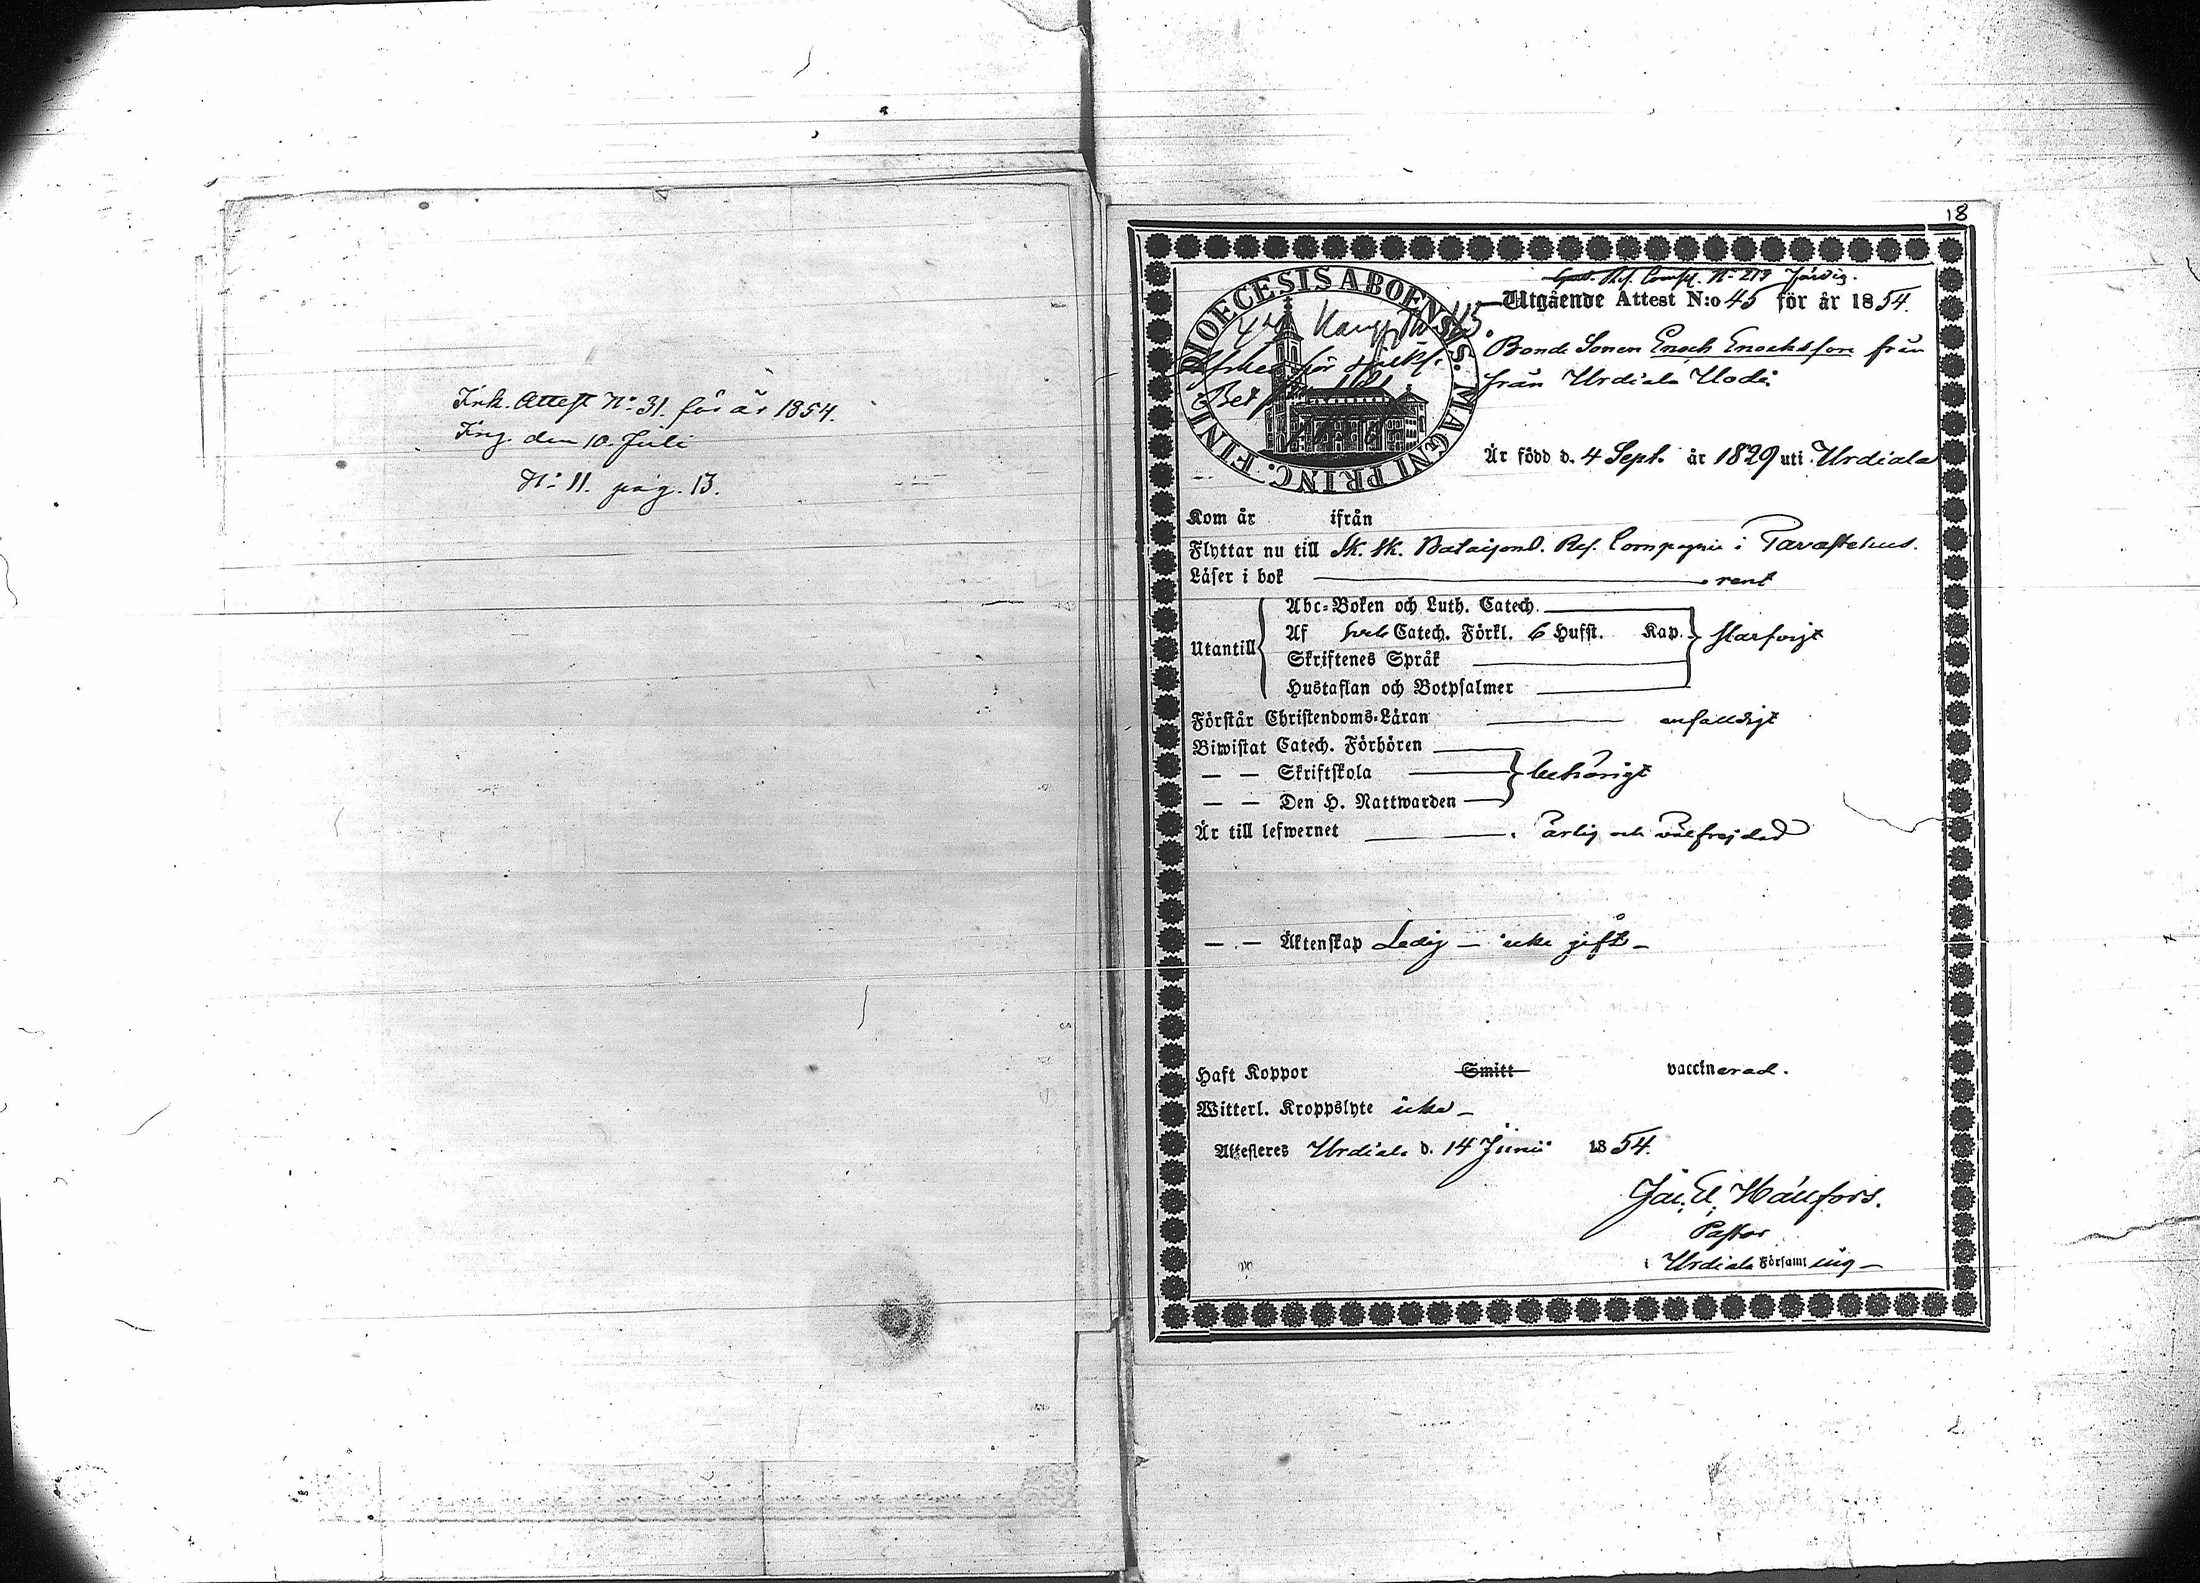 Ink. Attest No 31. för år 1854.
Ing. den 10. Juli
No 11. pag. 13.
18
Comp. No 219
DIOECESIS ABOENSIS. MAGNI PRINC. FINL.
Utgående Attest N:o 45 för år 1854.
Bonde Sonen Enoch Enochsson från
från Urdiala
Är född d. 4 Sept. år 1829 uti Urdiala
Kom år ifrån
Flyttar nu till Sk. Sk. Bataljons. Res. Compagnie i Tavastehus.
Läser i bok rent
Abc-Boken och Luth. Catech.
Utantill Af Catech. Förkl. 6 Hufst. Kap.
Skriftenes Språk
Hustaflan och Botpsalmer
Förstår Christendoms-Läran enfaldigt
Biwistat Catech. Förhören
— — Skriftskola behörigt
— — Den H. Nattwarden
Är till lefwernet ärlig och välfrejdad
— — Äktenskap Ledig — icke gift —
Haft Koppor Smitt vaccinerad.
Witterl. Kroppslyte icke —
Attesteres Urdiala d. 14 Junii 1854.
Hällfors.
Pastor
i Urdiala Församling —